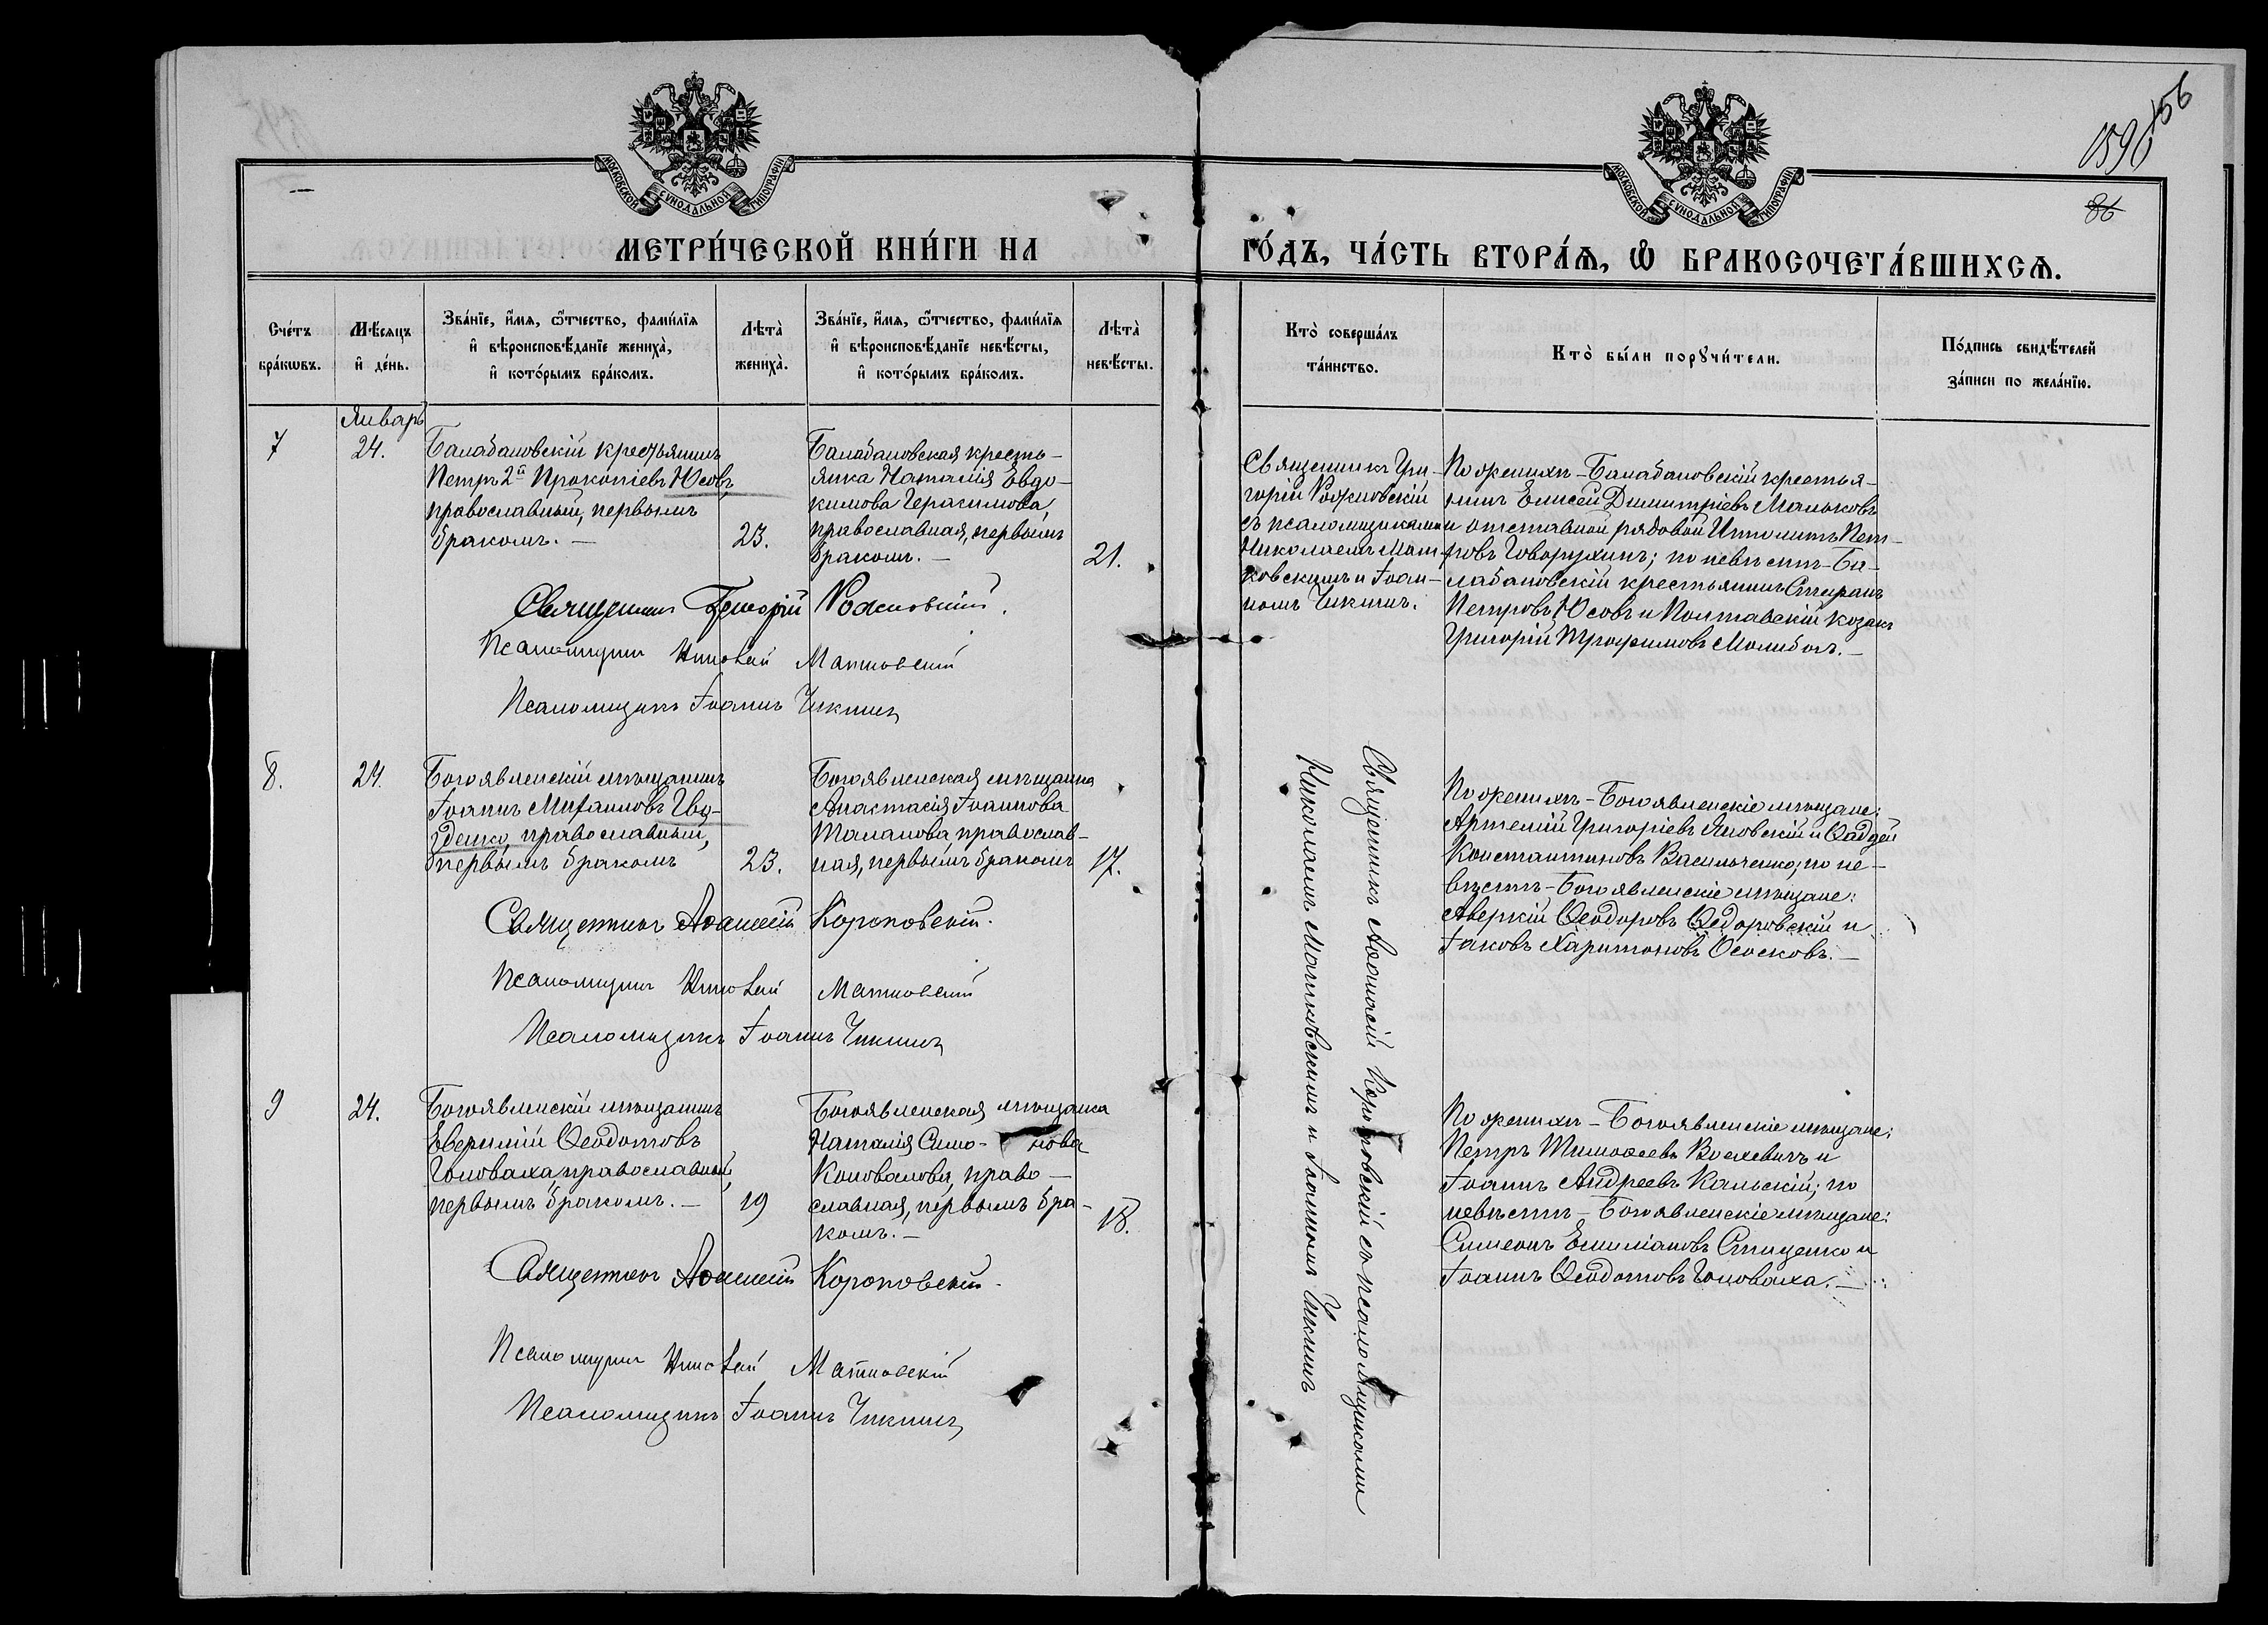 156
159
86
МОСКОВСКОЙ СѴНОДАЛЬНОЙ ТИПОГРАФІИ
МОСКОВСКОЙ СѴНОДАЛЬНОЙ ТИПОГРАФІИ
МЕТРИ́ЧЕСКОЙ КНИ́ГИ НА
ГО́ДЪ, ЧА́СТЬ ВТОРА́Ѧ, Ѽ БРАКОСОЧЕТА́ВШИХСѦ.
Сче́тъ
бра́кѡвъ.
Мѣ́сѧцъ
и҆ де́нь.
Зва́нїе, и҆́мѧ, ѻ҆́тчество, фами́лїѧ
и҆ вѣроисповѣ́данїе жениха̀,
и҆ кото́рымъ бра́комъ.
Лѣта̀
жениха̀.
Зва́нїе, и҆́мѧ, ѻ҆́тчество, фами́лїѧ
и҆ вѣроисповѣ́данїе невѣ́сты,
и҆ кото́рымъ бра́комъ.
Лѣта̀
невѣ́сты.
Кто̀ соверша́лъ
та́инство.
Кто̀ бы́ли порꙋчи́тели.
По́дпись свидѣ́телей
за́писи по жела́нїю.
Январь
7
24.
Балабановскій крестьянинъ
Петръ 2й Прокопіевъ Юсовъ,
православный, первымъ
бракомъ. —
23.
Балабановская кресть-
янка Наталія Евдо-
кимова Герасимова,
православная, первымъ
бракомъ. —
21.
Священникъ Гри-
горій Рожновскій
съ псаломщиками
Николаемъ Мат-
ковскимъ и Іоан-
номъ Чикинъ.
По женихѣ - Балабановскій крестья-
нинъ Елисей Димитріевъ Мальковъ
и отставной рядовой Ипполитъ Пет-
ровъ Говорухинъ; по невѣстѣ - Ба-
лабановскій крестьянинъ Стефанъ
Петровъ Юсовъ и Полтавскій козакъ
Григорій Трофимовъ Молибогъ. —
Священникъ Григорій Рожновскій.
Псаломщикъ Николай Матковскій
Псаломщикъ Іоаннъ Чикинъ
8.
24.
Богоявленскій мѣщанинъ
Іоаннъ Михаиловъ Гво-
зденко, православный,
первымъ бракомъ
23.
Богоявленская мѣщанка
Анастасія Іоаннова
Таланова, православ-
ная, первымъ бракомъ
17.
Священникъ Аѳанасій Короповскій съ псаломщиками
Николаемъ Матковскимъ и Іоанномъ Чикинъ
По женихѣ - Богоявленскіе мѣщане:
Артемій Григоріевъ Яновскій и Ѳаддей
Константиновъ Васильченко; по не-
вѣстѣ - Богоявленскіе мѣщане:
Аверкій Ѳеодоровъ Ѳедоровскій и
Іаковъ Харитоновъ Ососковъ. —
Священникъ Аѳанасій Короповскій.
Псаломщикъ Николай Матковскій
Псаломщикъ Іоаннъ Чикинъ
9
24.
Богоявленскій мѣщанинъ
Евфимій Ѳеодотовъ
Головаха, православный,
первымъ бракомъ. —
19
Богоявленская мѣщанка
Наталія Симо- нова
Коновалова, право-
славная, первымъ бра-
комъ. —
18.
По женихѣ - Богоявленскіе мѣщане:
Петръ Тимоѳеевъ и
Іоаннъ Андреевъ Кальскій; по
невѣстѣ - Богоявленскіе мѣщане:
Симеонъ Емиліановъ Стиценко и
Іоаннъ Ѳеодотовъ Головаха. —
Священникъ Аѳанасій Короповскій.
Псаломщикъ Николай Матковскій
Псаломщикъ Іоаннъ Чикинъ